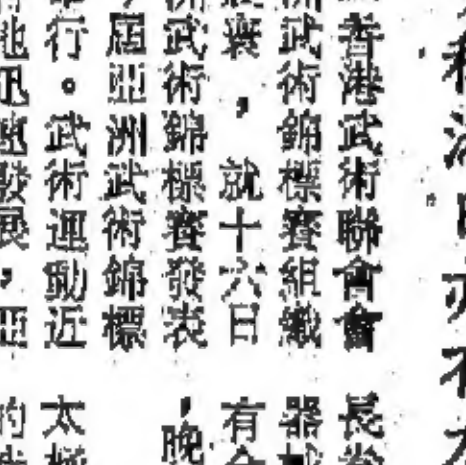 香港武術聯會會
武術錦標賽組織
，就十六日
武術錦標賽發表
屆亞洲武術錦標
行。武術運動近
地迅速發展，亞
長拳
器械
有
，晚
太極
的